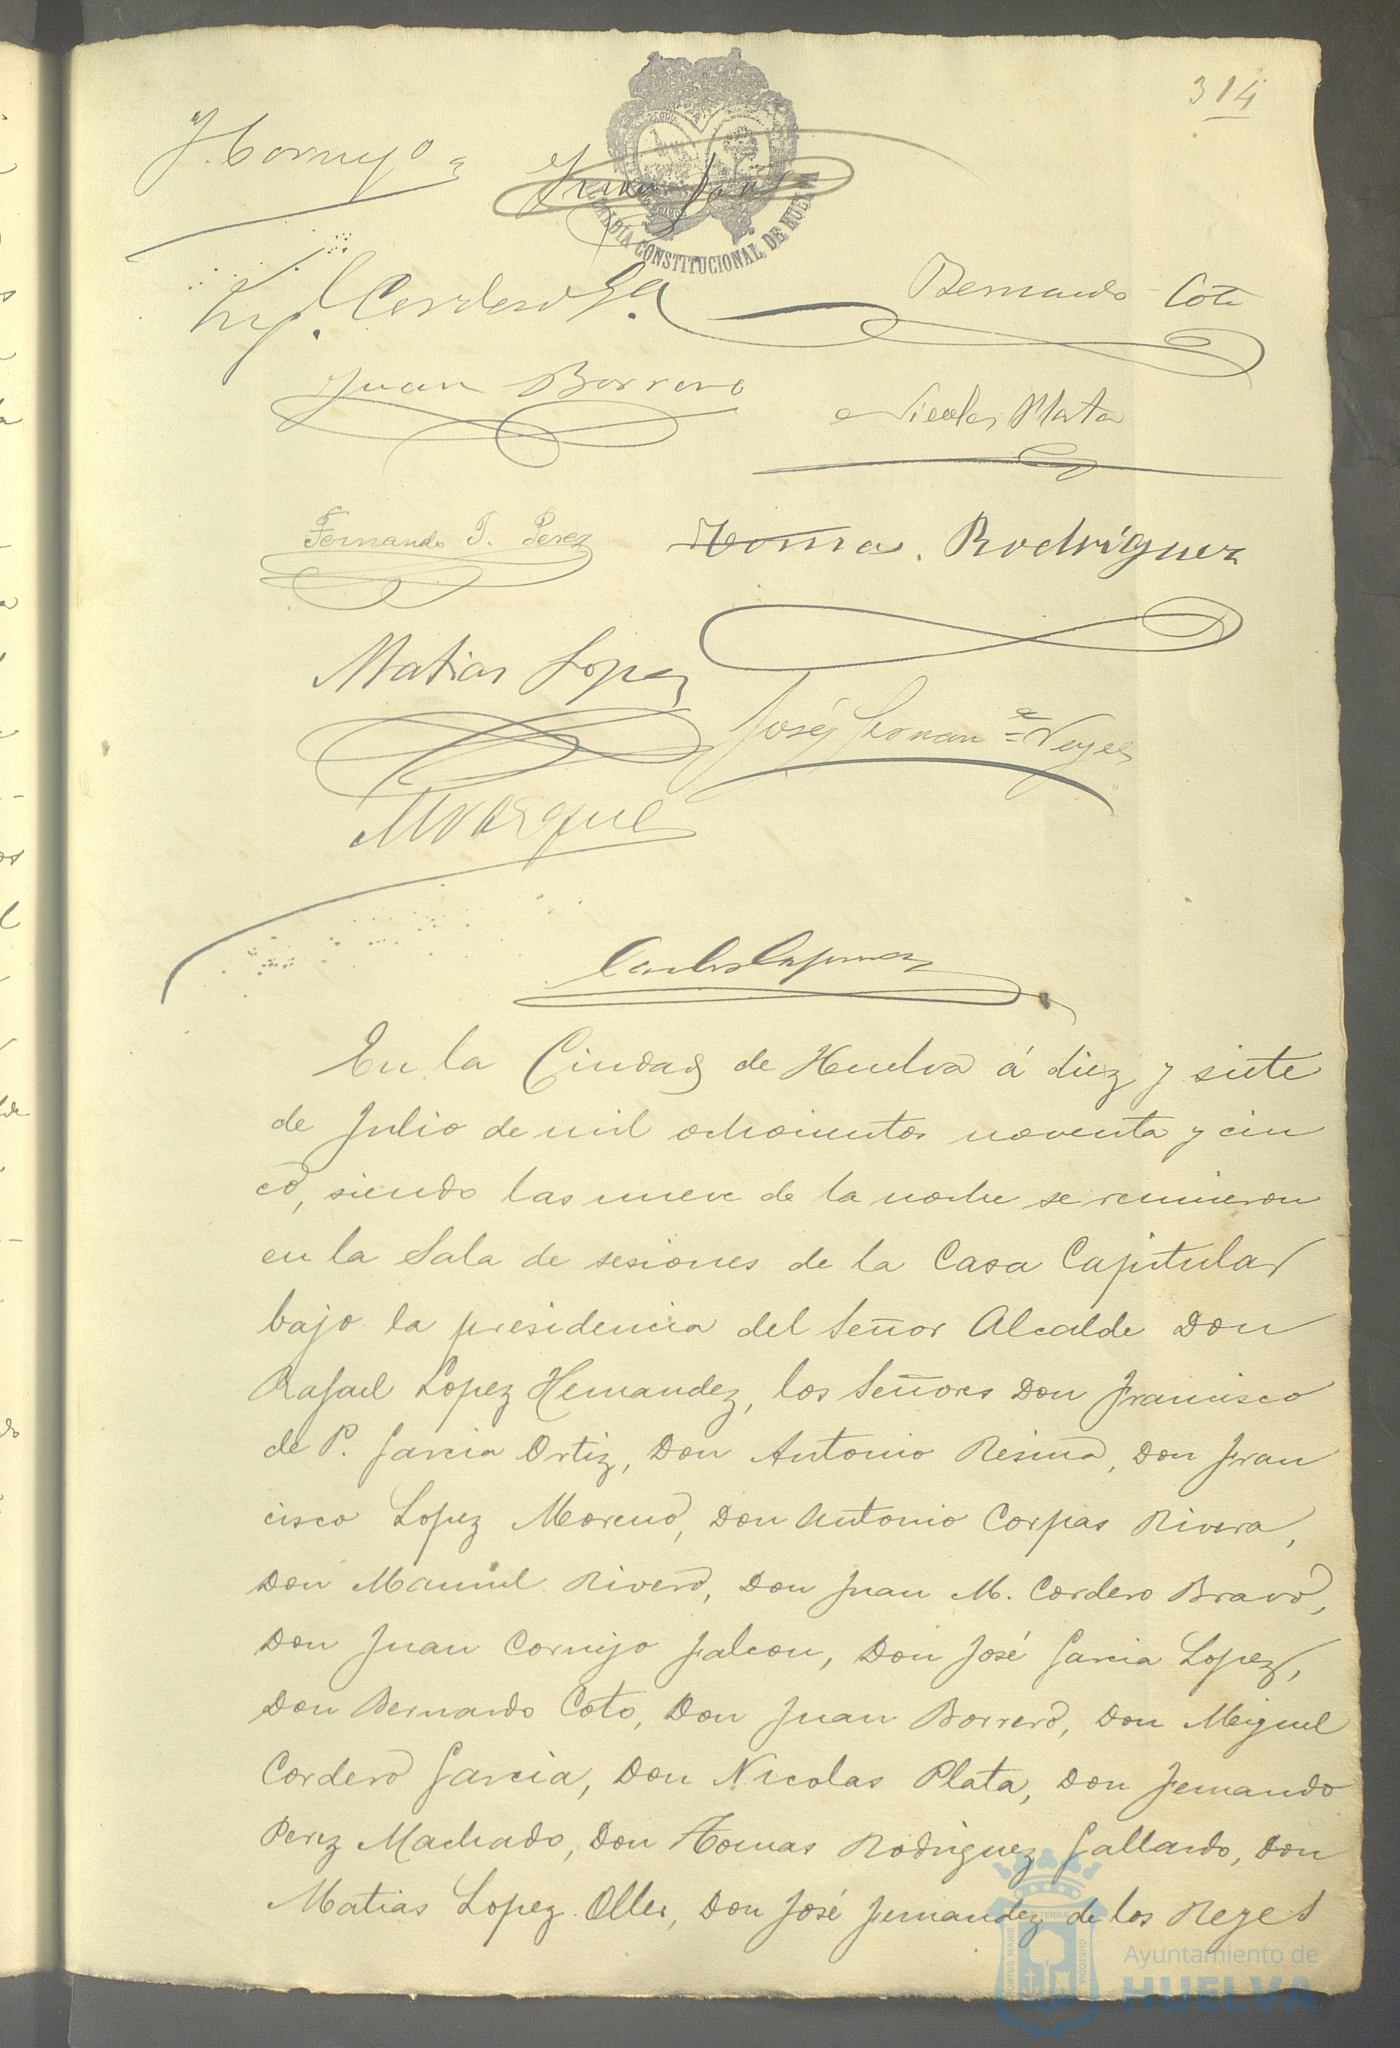 314
J. Cornejo
ALCALDIA CONSTITUCIONAL DE HUELVA
Cordero Ga
Bernardo Coto
Juan Borrero
Nicolas Plata
Fernando T. Perez
Tomas Rodriguez
Matias Lopez
José Fernandz Reyes
M Vazquez
En la Ciudad de Huelva á diez y siete
de Julio de mil ochocientos noventa y cin
co, siendo las nueve de la noche se reunieron
en la Sala de sesiones de la Casa Capitular
bajo la presidencia del Señor Alcalde Don
Rafael Lopez Hernandez, los Señores Don Francisco
de P. Garcia Ortiz, Don Antonio Resina, Don Fran
cisco Lopez Moreno, Don Antonio Corpas Rivera,
Don Manuel Rivero, Don Juan M. Cordero Bravo,
Don Juan Cornejo Falcon, Don José Garcia Lopez,
Don Bernardo Coto, Don Juan Borrero, Don Miguel
Cordero Garcia, Don Nicolas Plata, Don Fernando
Perez Machado, Don Tomas Rodriguez Gallardo, Don
Matias Lopez Oller, Don José Fernandez de los Reyes
Ayuntamiento de
HUELVA